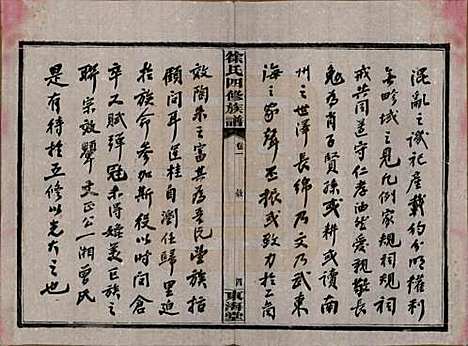 混亂之譏祀產載約分明權利
無畛域之見凡例家規祠規祠
戒共同遵守仁孝油然愛親敬長
為肖賢孫或耕或讀南
州之世澤長綿乃文乃武東
海之家聲丕振或致力於工商
徐氏四修族譜
卷一
東海堂
效陶朱之富其為吾氏望族指
顧間耳運桂自瀏任歸里迫
於族命參加斯役以時間倉
卒又賦彈冠未得媲美巨族之
聯宗效顰文正公湘曾氏
是有待於五修以光大之也